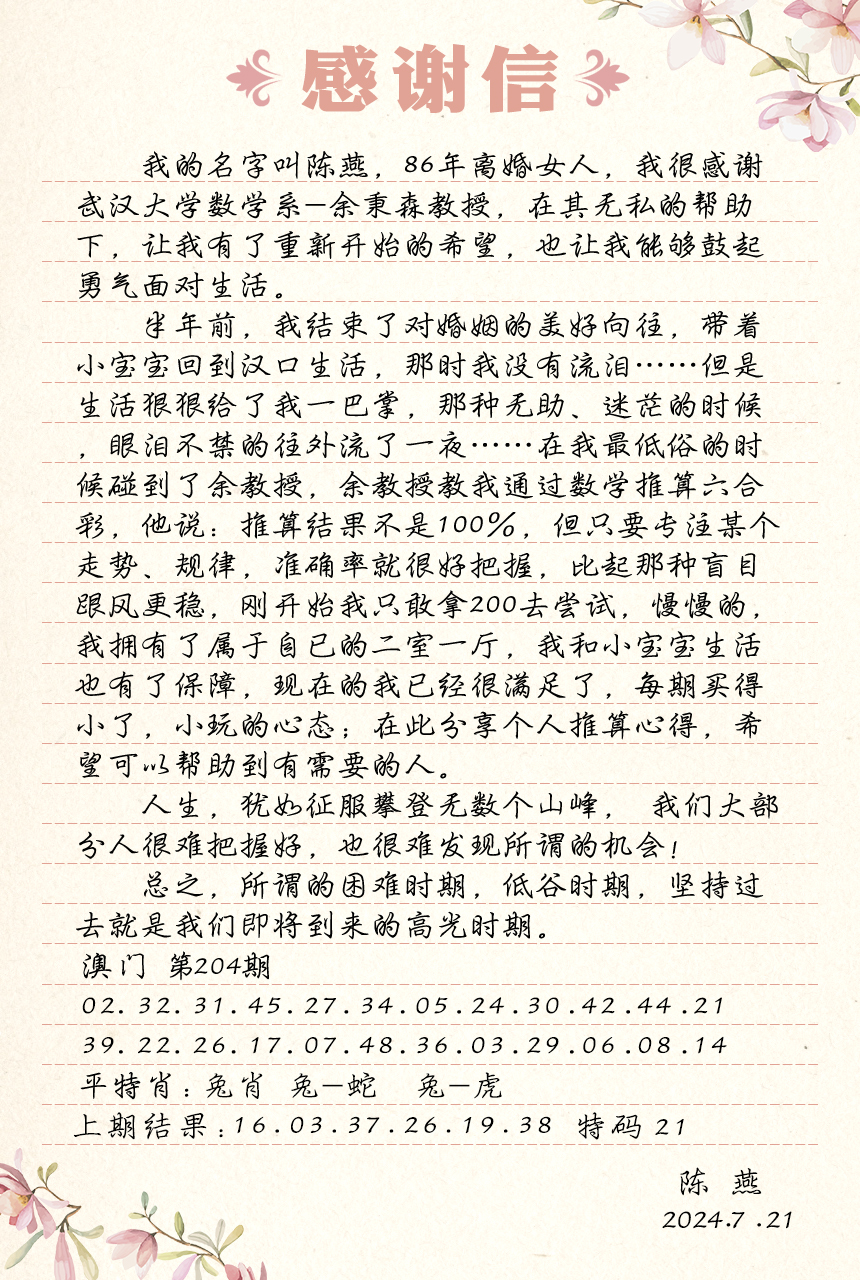 感谢信
我的名字叫陈燕，86年离婚女人，我很感谢
武汉大学数学系—余秉森教授，在其无私的帮助
下，让我有了重新开始的希望，也让我能够鼓起
勇气面对生活。
半年前，我结束了对婚姻的美好向往，带着
小宝宝回到汉口生活，那时我没有流泪……但是
生活狠狠给了我一巴掌，那种无助、迷茫的时候
，眼泪不禁的往外流了一夜……在我最低俗的时
候碰到了余教授，余教授教我通过数学推算六合
彩，他说：推算结果不是100%，但只要专注某个
走势、规律，准确率就很好把握，比起那种盲目
跟风更稳，刚开始我只敢拿200去尝试，慢慢的，
我拥有了属于自已的二室一厅，我和小宝宝生活
也有了保障，现在的我已经很满足了，每期买得
小了，小玩的心态；在此分享个人推算心得，希
望可以帮助到有需要的人。
人生，犹如征服攀登无数个山峰， 我们大部
分人很难把握好，也很难发现所谓的机会！
总之，所谓的困难时期，低谷时期，坚持过
去就是我们即将到来的高光时期。
澳门 第204期
02.32.31.45.27.34.05.24.30.42.44.21
39.22.26.17.07.48.36.03.29.06.08.14
平特肖：兔肖 兔—蛇 兔—虎
上期结果：16.03.37.26.19.38 特码 21
陈 燕
2024.7.21